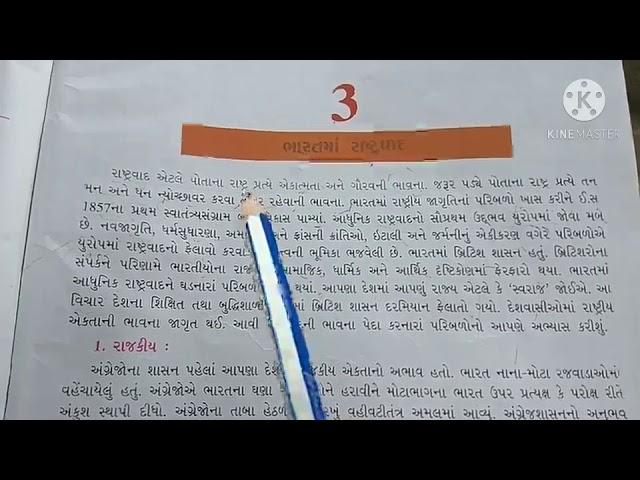 3
KINEMASTER
ભારતમાં રાષ્ટ્રવાદ
રાષ્ટ્રવાદ એટલે પોતાના રાષ્ટ્ર પ્રત્યે એકાત્મતા અને ગૌરવની ભાવના. જરૂર પડ્યે પોતાના રાષ્ટ્ર પ્રત્યે તન
મન અને ધન ન્યોચ્છાવર કરવા રહેવાની ભાવના. ભારતમાં રાષ્ટ્રીય જાગૃતિનાં પરિબળો ખાસ કરીને ઈ.સ
1857ના પ્રથમ સ્વાતંત્ર્યસંગ્રામ પામ્યાં. આધુનિક રાષ્ટ્રવાદનો સૌપ્રથમ ઉદ્દભવ યુરોપમાં જોવા મળે
છે. નવજાગૃતિ, ધર્મસુધારણા, ફ્રાંસની ક્રાંતિઓ, ઇટાલી અને જર્મનીનું એકીકરણ વગેરે પરિબળોએ
યુરોપમાં રાષ્ટ્રવાદનો ફેલાવો કરવા ભૂમિકા ભજવેલી છે. ભારતમાં બ્રિટિશ શાસન હતું. બ્રિટિશરોના
સંપર્કને પરિણામે ભારતીયોના સામાજિક, ધાર્મિક અને આર્થિક દૃષ્ટિકોણમાં ફેરફારો થયા. ભારતમાં
આધુનિક રાષ્ટ્રવાદને ઘડનારાં પરિબળો થયાં. આપણા દેશમાં આપણું રાજ્ય એટલે કે ‘સ્વરાજ’ જોઈએ. આ
વિચાર દેશના શિક્ષિત તથા બ્રિટિશ શાસન દરમિયાન ફેલાતો ગયો. દેશવાસીઓમાં રાષ્ટ્રીય
એકતાની ભાવના જાગૃત થઈ. આવી ભાવના પેદા કરનારાં પરિબળોનો આપણે અભ્યાસ કરીશું.
1. રાજકીય :
અંગ્રેજોના શાસન પહેલાં આપણા રાજકીય એકતાનો અભાવ હતો. ભારત નાના-મોટા રજવાડાઓમાં
વહેંચાયેલું હતું. અંગ્રેજોએ ભારતના ઘણા હરાવીને મોટાભાગના ભારત ઉપર પ્રત્યક્ષ કે પરોક્ષ રીતે
અંકુશ સ્થાપી દીધો. અંગ્રેજોના તાબા હેઠળ વહીવટીતંત્ર અમલમાં આવ્યું. અંગ્રેજશાસનનો અનુભવ